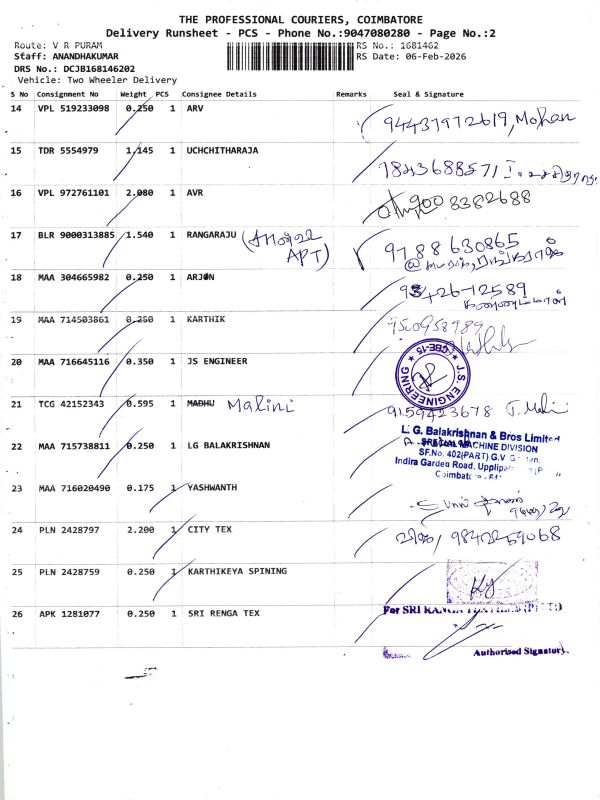 THE PROFESSIONAL COURIERS, COIMBATORE
Delivery Runsheet - PCS - Phone No.:9047080280 - Page No.:2
Route: V R PURAM
RS No.: 1681462
Staff: ANANDHAKUMAR
RS Date: 06-Feb-2026
DRS No.: DCJB168146202
Vehicle: Two Wheeler Delivery
S No Consignment No Weight PCS Consignee Details Remarks Seal & Signature
14 VPL 519233098 0.250 1 ARV
Mohan
15 TDR 5554979 1.145 1 UCHCHITHARAJA
7843688571
16 VPL 972761101 2.080 1 AVR
8382688
17 BLR 9000313885 1.540 1 RANGARAJU
APT)
9788630865
18 MAA 304665982 0.250 1 ARJUN
19 MAA 714503861 0.250 1 KARTHIK
20 MAA 716645116 0.350 1 JS ENGINEER
J.S ENGINEERING
CBE-15
21 TCG 42152343 0.595 1 MADHU Malini
9159423678
22 MAA 715738811 0.250 1 LG BALAKRISHNAN
L. G. Balakrishnan & Bros Limited
SPECIAL MACHINE DIVISION
SF.No. 402(PART) G.V
Indira Garden Road,
Coimbatore
23 MAA 716020490 0.175 1 YASHWANTH
24 PLN 2428797 2.200 1 CITY TEX
9842259068
25 PLN 2428759 0.250 1 KARTHIKEYA SPINING
26 APK 1281077 0.250 1 SRI RENGA TEX
For SRI RANGA
Authorised Signatory.